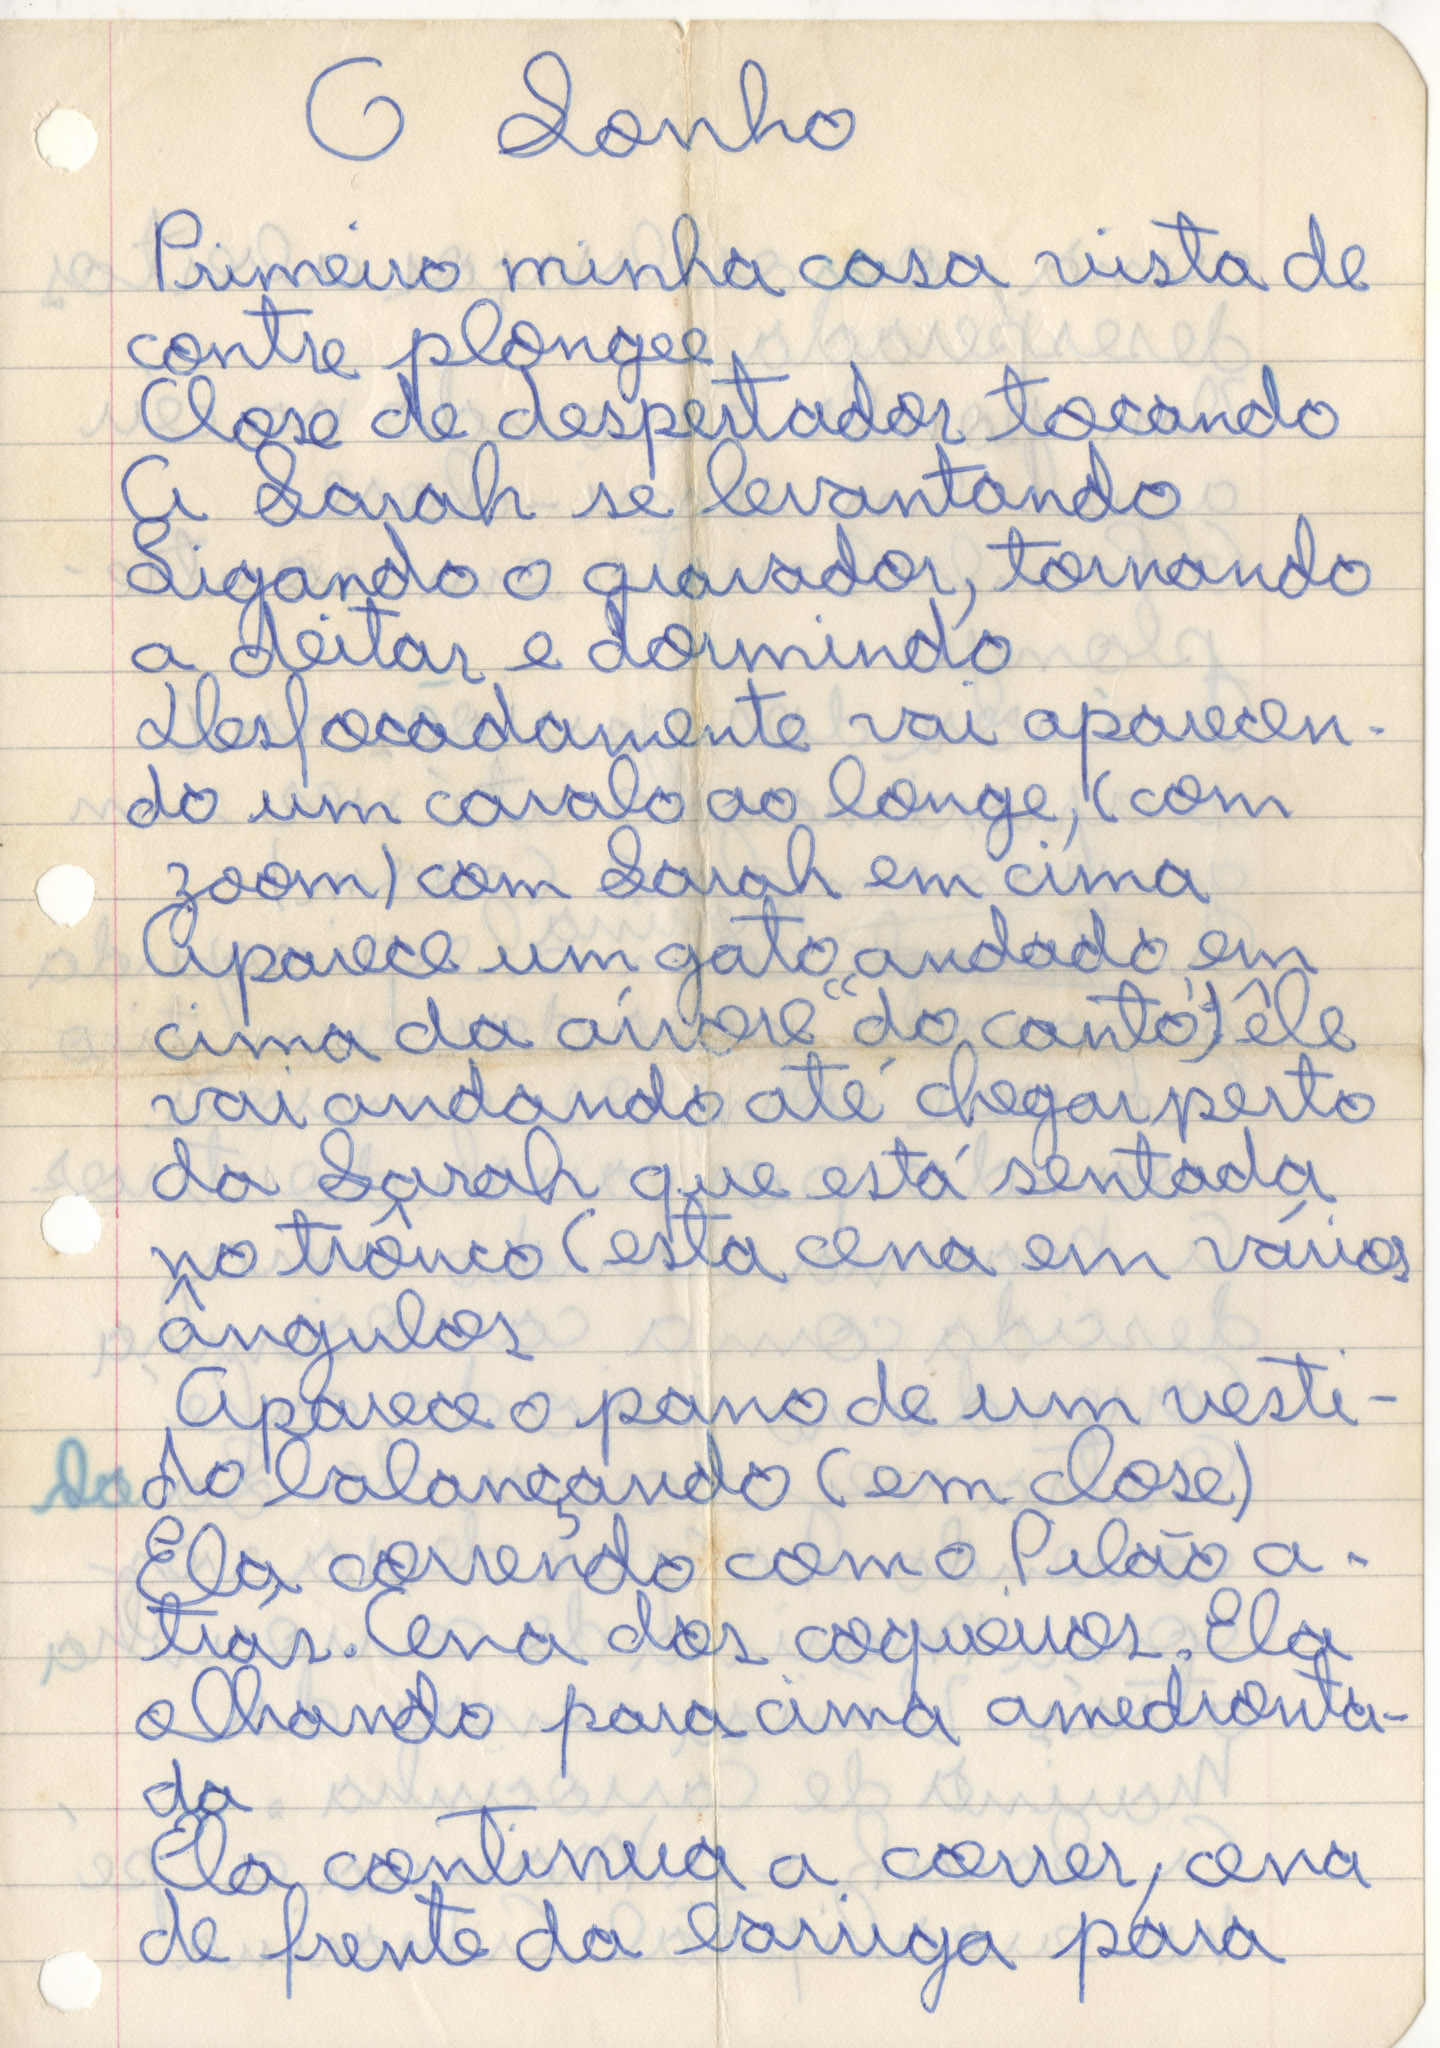 O Sonho
Primeiro minha casa vista de
contre plongee
Close de despertador tocando
A Sarah se levantando
Ligando o gravador, tornando
a deitar e dormindo
Desfocadamente vai aparecen-
do um cavalo ao longe, (com
zoom) com Sarah em cima
Aparece um gato andado em
cima da árvore "do canto"; êle
vai andando até chegar perto
da Sarah que está sentada
no trônco (esta cena em vários
ângulos
Aparece o pano de um vesti-
do balançando (em close)
Ela correndo com o Pilão a-
trás. Cena dos coqueiros. Ela
olhando para cima amedronta-
da
Ela continua a correr, cena
de frente da barriga para